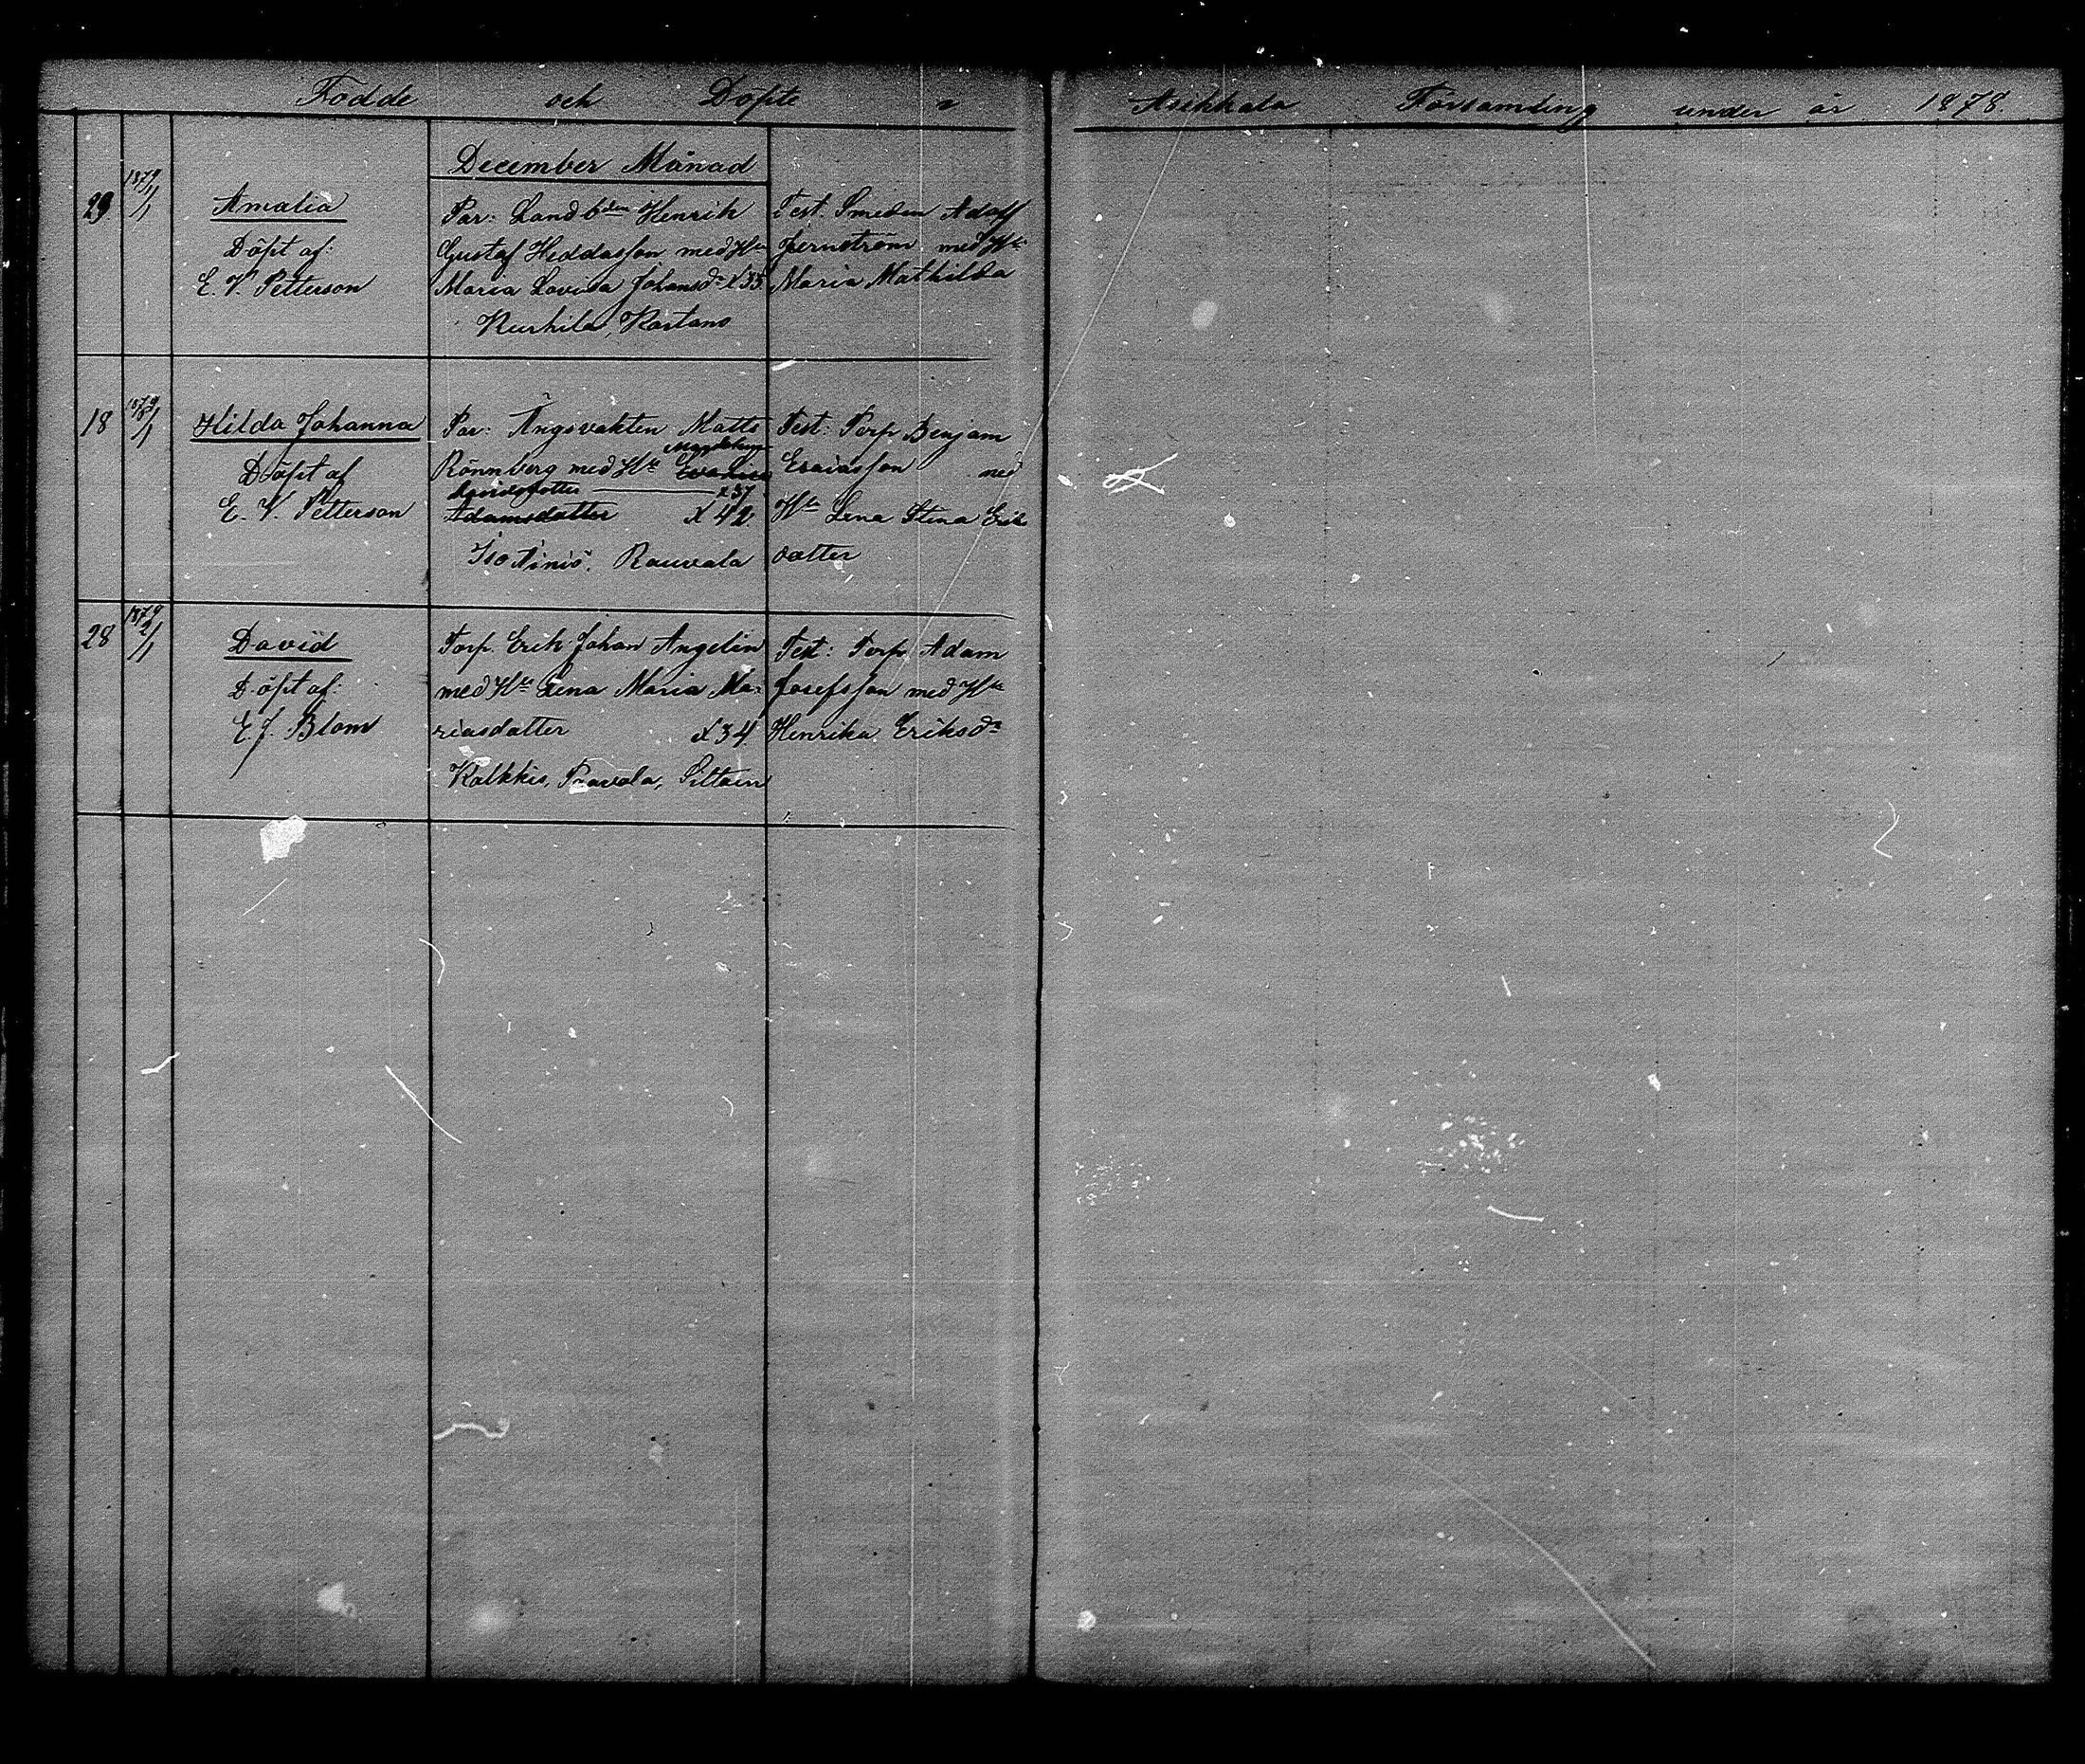 Födde och Döpte i Asikkala Församling under år 1878
December Månad
29 1879 1/1 Amalia
Döpt af:
E. V. Petterson
Par: Landbden Henrik
Gustaf Heddasson med Hu
Maria Lovisa Johansdr x 33
Kurhila, Kartano
Test. Smeden Adolf
Jernström med Hu
Maria Mathilda
18 1879 /1 Hilda Johanna
Döpt af
E. V. Petterson
Par: Ängsvakten Matts
Rönnberg med Hu
Davidsdotter x 37
Adamsdotter x 42
Iso Äiniö, Rauvala
Test: Torp Benjam
Esaiasson med
Hu Lena Stina Erik
dotter
28 1879 2/1 David
Döpt af:
E. J. Blom
Torp. Erik Johan Angelin
med Hu Lena Maria Ma-
riasdotter x 34
Kalkkis, Pravala, Siltain
Test: Torp Adam
Josefsson med Hu
Henrika Eriksdr